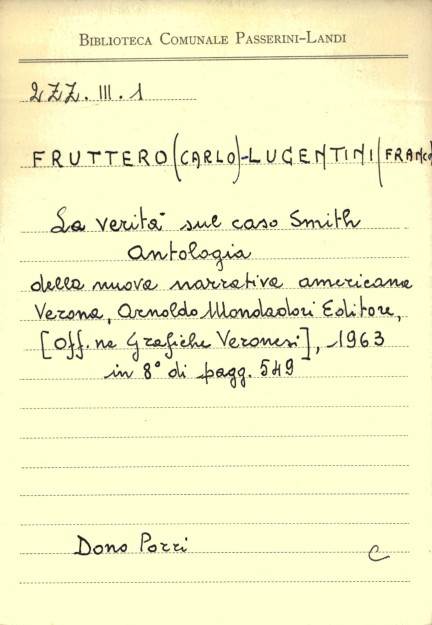 BIBLIOTECA COMUNALE PASSERINI-LANDI
2ZZ. III. 1
FRUTTERO (CARLO)-LUCENTINI (FRANCO
La verità sul caso Smith
Antologia
della nuova narrativa americana
Verona, Arnoldo Mondadori Editore,
[Off.ne Grafiche Veronesi], 1963
in 8° di pagg. 549
Dono Porri
C